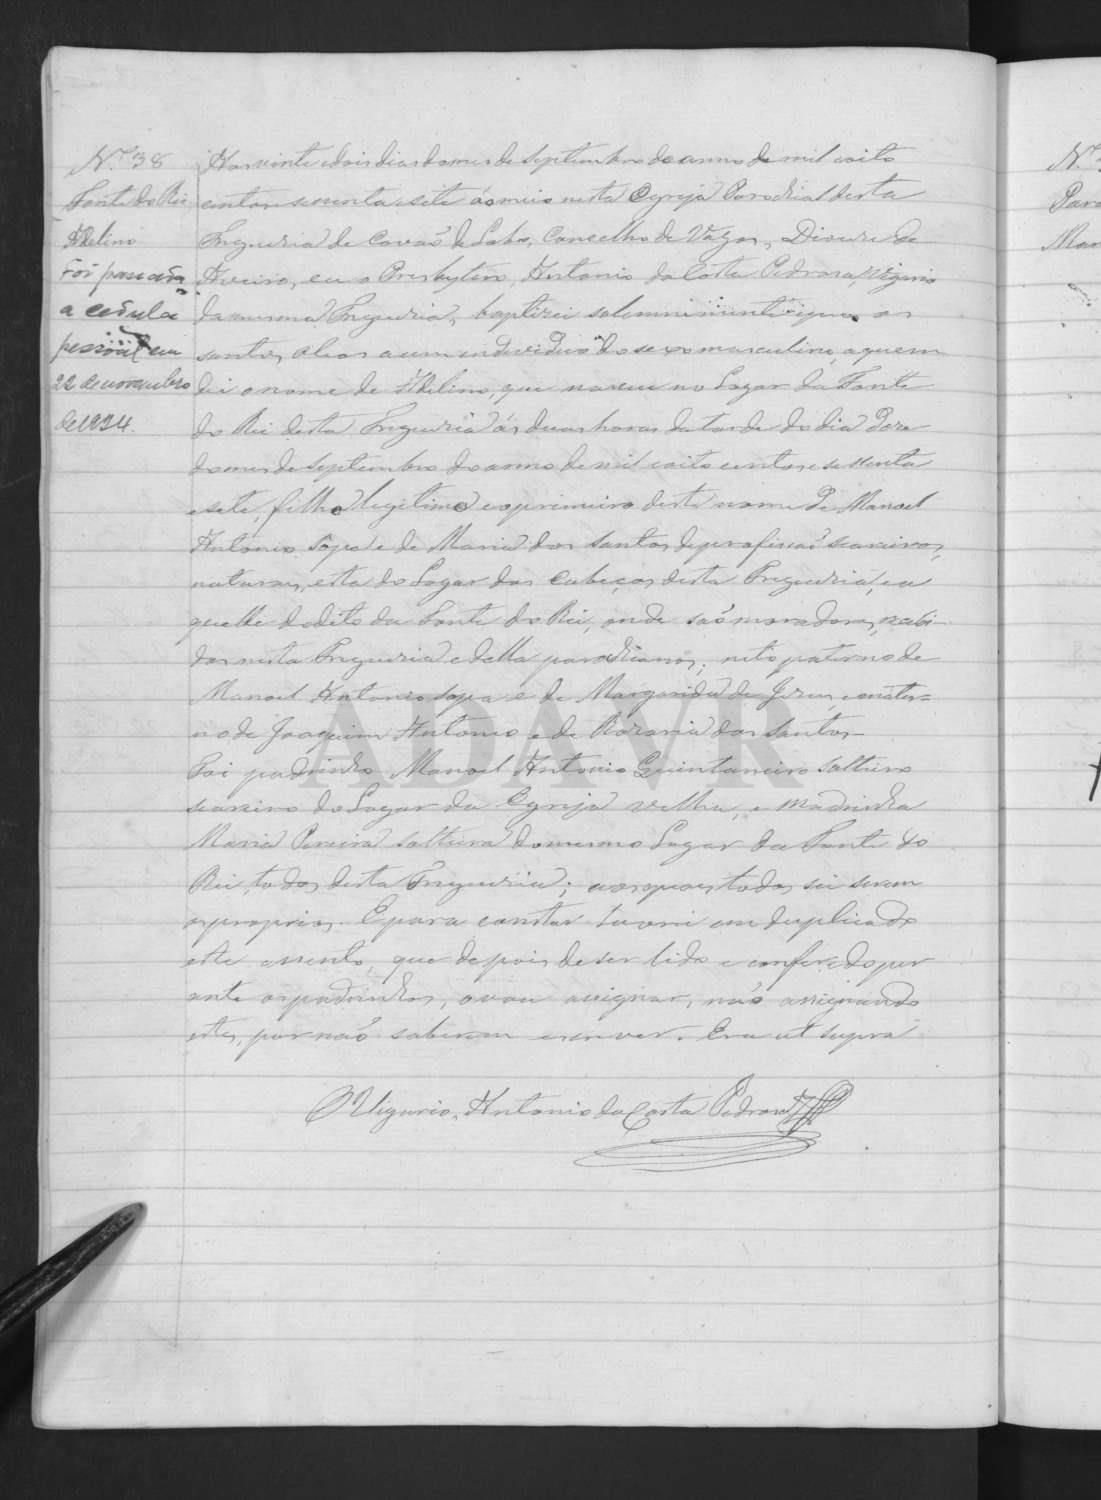 N.º 38
Fonte do Rei
Adelino
Foi passada
a cedula
pessoal em
22 de novembro
de 1924.
Aos vinte e dois dias do mes de Septembro do anno de mil oito
centos e sessenta e sete ás nesta Egreja Parochial desta
Freguezia de Covaõ do Lobo, Conselho de Vagos, Diocese de
Aveiro, eu o Presbytero, Antonio da Costa Pedrosa, Vigario
da mesma Freguezia, baptizei solemnimente e puz os
santos oleos a um individuo do sexo masculino, a quem
dei o nome de Adelino, que nasceu no Logar da Fonte
do Rei desta Freguezia ás duas horas da tarde do dia doze
do mes de Septembro do anno de mil oito centos e sessenta
e sete, filho legitimo e o primeiro deste nome de Manoel
Antonio Sopa e de Maria dos Santos de profissaõ seareiros,
naturaes, esta do Logar das Cabeças desta Freguezia, e a
quelle do dito da Fonte do Rei, onde saõ moradores, recebi-
dos nesta Freguezia e della parochianos; neto paterno de
Manoel Antonio Sopa e de Margarida de Jesus, e mater-
no de Joaquim Antonio e de Rozaria dos Santos.
Foi padrinho Manoel Antonio Quintaneiro solteiro
seareiro do Logar da Egreja velha, e Madrinha
Maria Pereira solteira do mesmo Logar da Fonte do
Rei, todos desta Freguezia; aos quaes todos sei serem
os proprios. E para constar lavrei em duplicado
este assento, que depois de ser lido e conferido per
ante os padrinhos, o vou assignar, naõ assignando
estes, por naõ saberem escrever. Era ut supra
O Vigario, Antonio da Costa Pedrosa
N.º
ADAVR